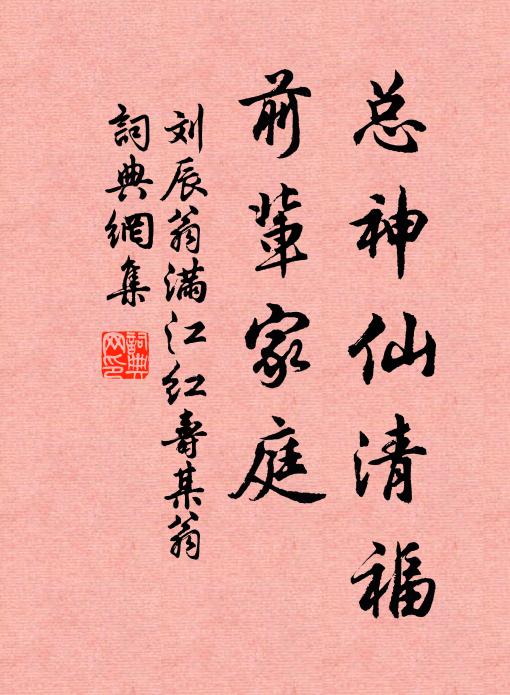 总神仙清福
前辈家庭
刘辰翁满江红寿某翁
詞典網集
詞典网印